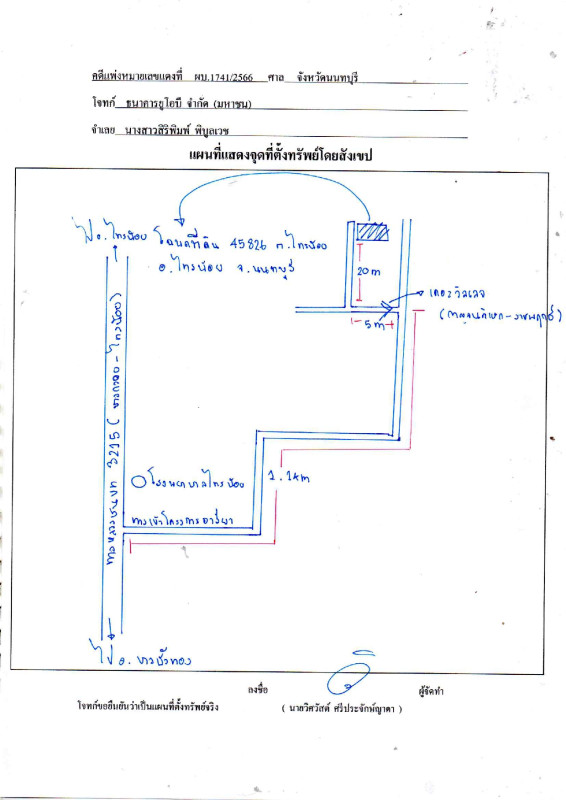 คดีแพ่งหมายเลขแดงที่ ผบ.1741/2566 ศาล จังหวัดนนทบุรี
โจทก์ ธนาคารยูโอบี จำกัด (มหาชน)
จำเลย นางสาวสิริพิมพ์ พิบูลเวช
แผนที่แสดงจุดที่ตั้งทรัพย์โดยสังเขป
ไป อ.ไทรน้อย
โฉนดที่ดิน 45826 ต.ไทรน้อย
อ.ไทรน้อย จ.นนทบุรี
20m
5m
เดอะวิลเลจ
(กาญจนาภิเษก-ราชพฤกษ์)
ทางหลวงชนบท 3215 (บางกรวย-ไทรน้อย)
โรงพยาบาลไทรน้อย
1.14m
ทางเข้าโครงการ
ไป อ. บางบัวทอง
ลงชื่อ ผู้จัดทำ
โจทก์ขอยืนยันว่าเป็นแผนที่ตั้งทรัพย์จริง ( นายวิศวัสต์ ศรีประจักษ์ญาดา )